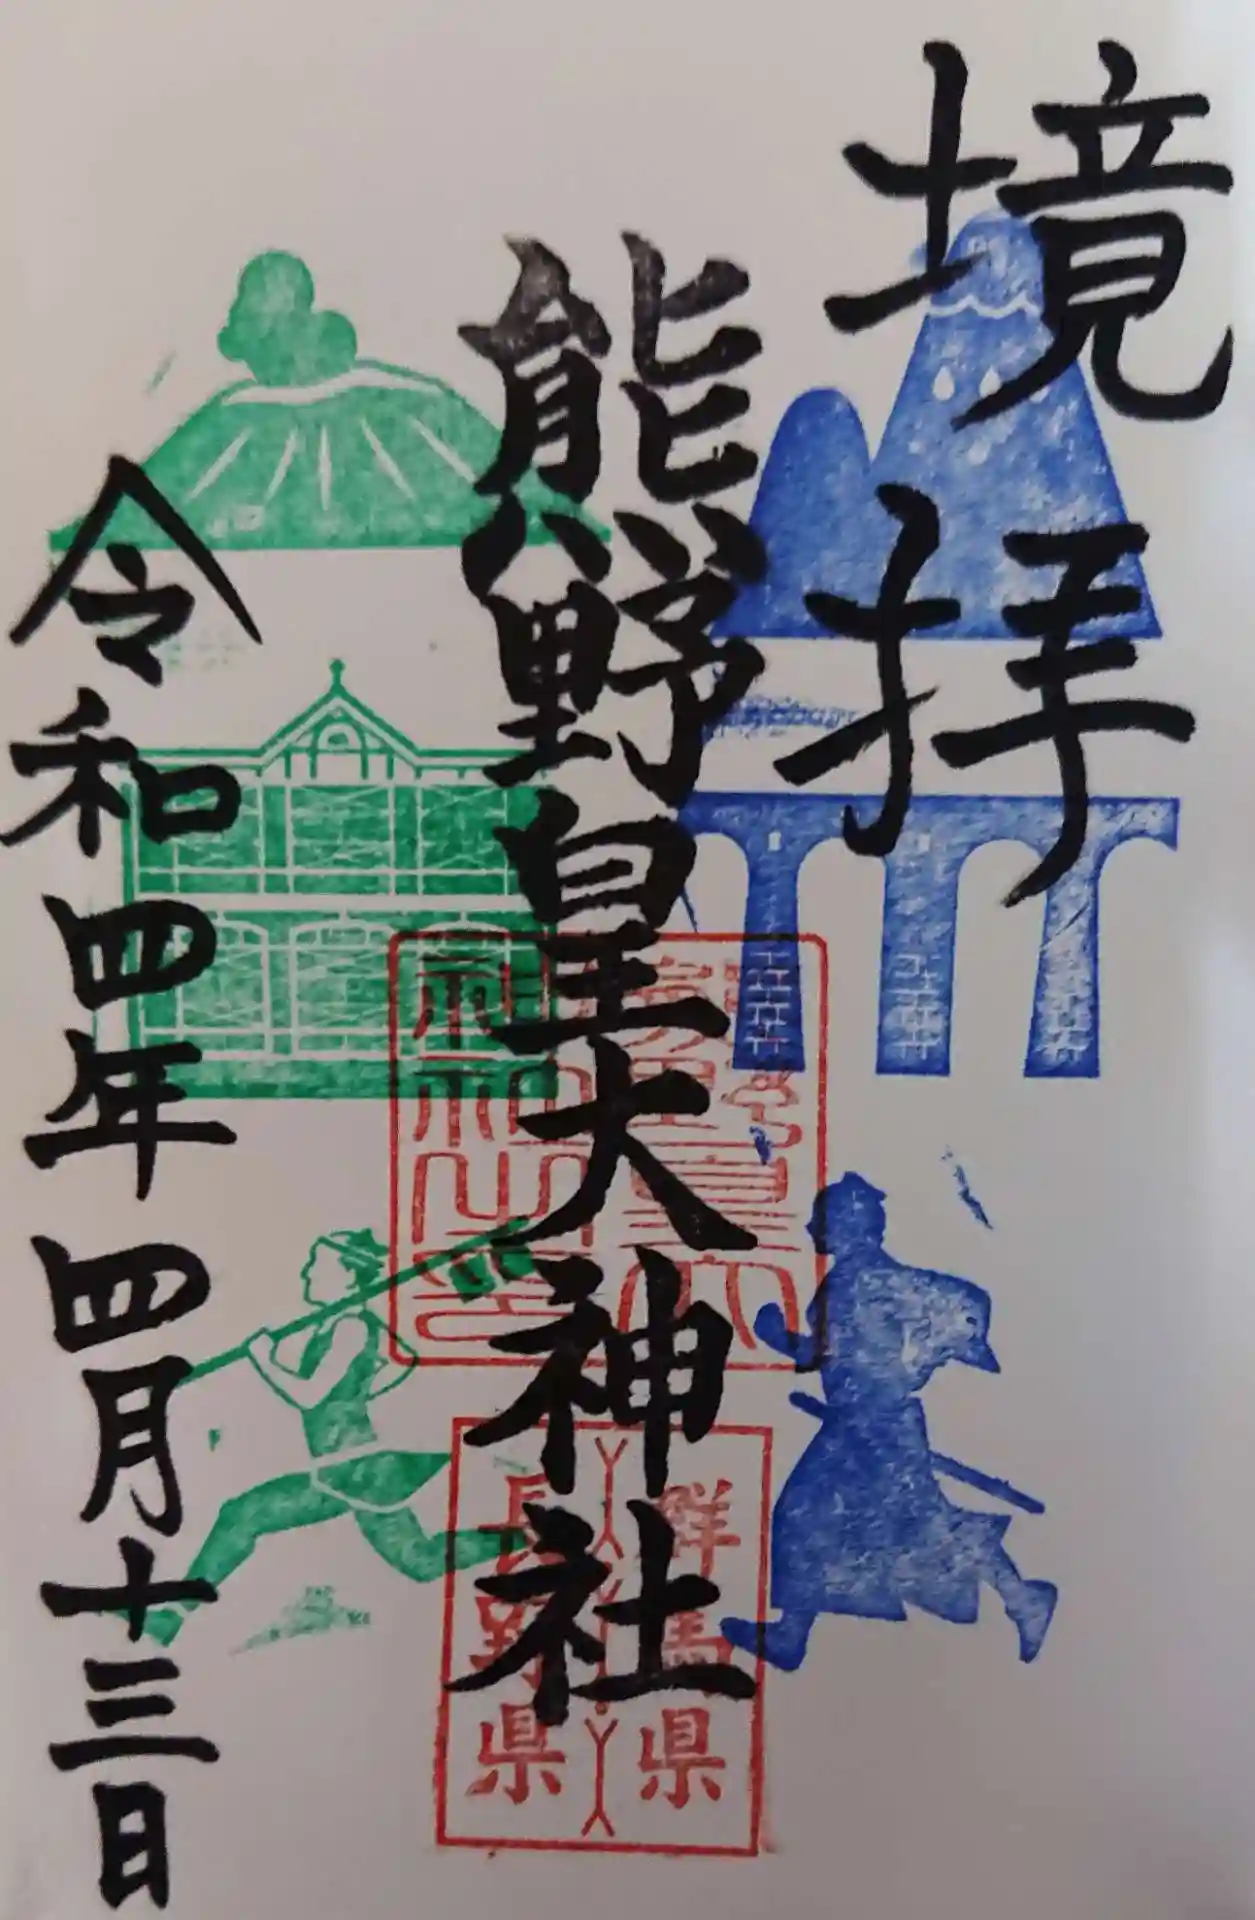 境拝
熊野皇大神社
令和四年四月十三日
群馬県
長野県